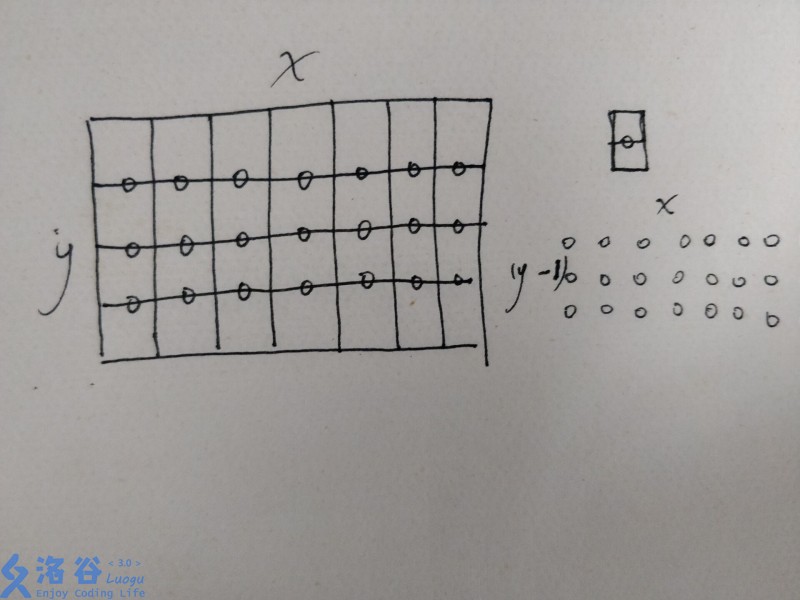 x
y
x
(y-1)
洛谷 <3.0>
Luogu
Enjoy Coding Life